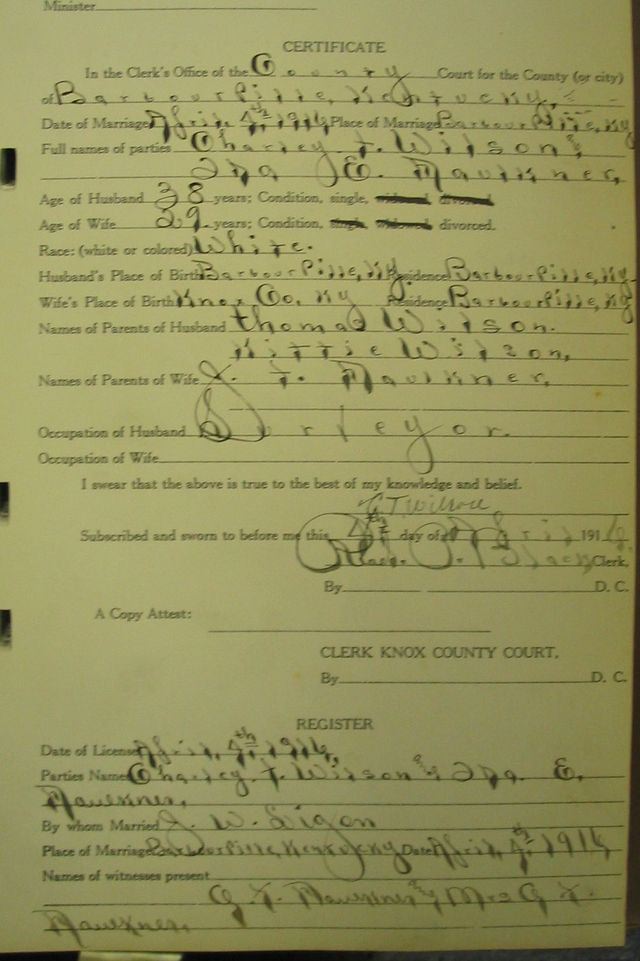 Minister
CERTIFICATE
In the Clerk's Office of the County Court for the County (or city)
of Barbourville, Kentucky,
Date of Marriage April 4th, 1916, Place of Marriage Barbourville, Ky
Full names of parties Charley T. Wilson, &
E. Faulkner,
Age of Husband 38 years; Condition, single, widowed divorced
Age of Wife 29. years; Condition, single, widowed divorced.
Race: (white or colored) White.
Husband's Place of Birth Barbourville, Ky. Residence Barbourville, Ky.
Wife's Place of Birth Knox Co, Ky Residence Barbourville, Ky
Names of Parents of Husband Thomas Wilson.
Kittie Wilson,
Names of Parents of Wife F. Faulkner,
Occupation of Husband Surveyor.
Occupation of Wife
I swear that the above is true to the best of my knowledge and belief.
C T Wilson
Subscribed and sworn to before me this 4th day of April 1916.
Black Clerk.
By D. C.
A Copy Attest:
CLERK KNOX COUNTY COURT.
By D. C.
REGISTER
Date of License April, 4th, 1916,
Parties Name Charley T. Wilson & E.
Faulkner,
By whom Married J. W. Ligon
Place of Marriage Barbourville, Kentucky Date April, 4th, 1916
Names of witnesses present
Faulkner & Mrs
Faulkner,